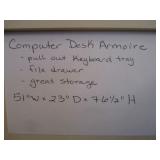 Computer Desk Armoire
- pull out keyboard tray
- file drawer
- great storage
51"W x 23"D x 76½"H